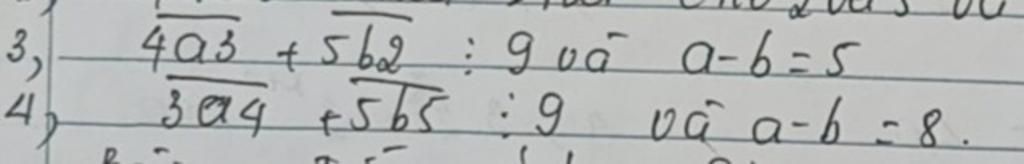 3, 4a3 + 5b2 ⋮ 9 và a-b=5
4, 3a4 +5b5 ⋮ 9 và a-b=8.